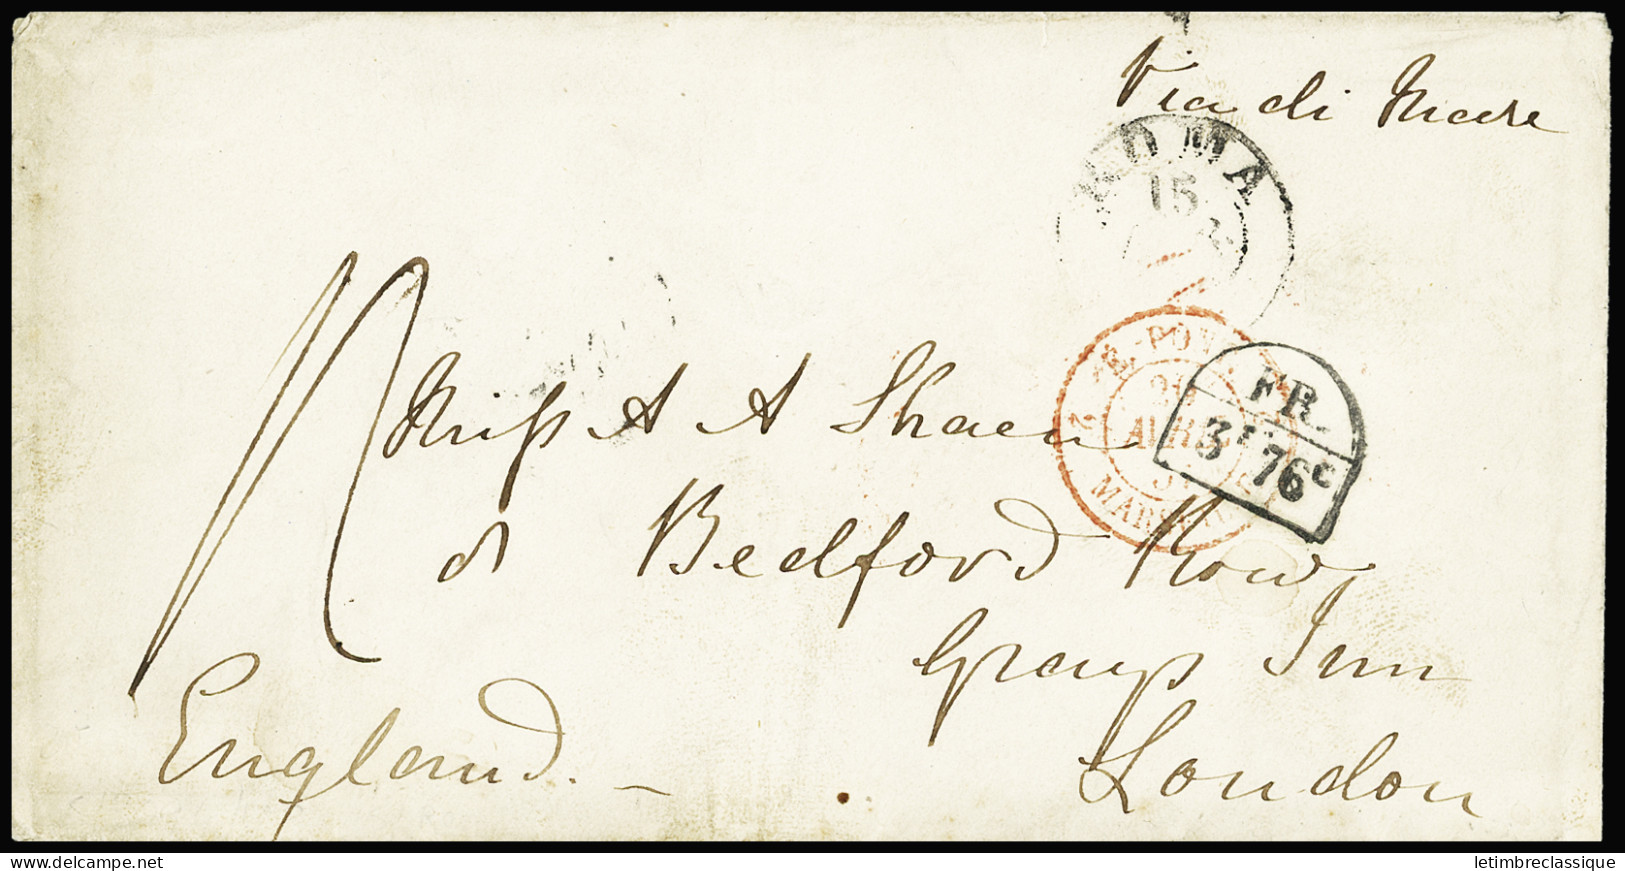 Via di Mare
ROMA
15
E.-PONT.
AVRIL
MARSEILLE
2
FR.
3F 76C
Miss A A Shaen
8 Bedford Row
Grays Inn
London
England.
delcampe.net
letimbreclassique